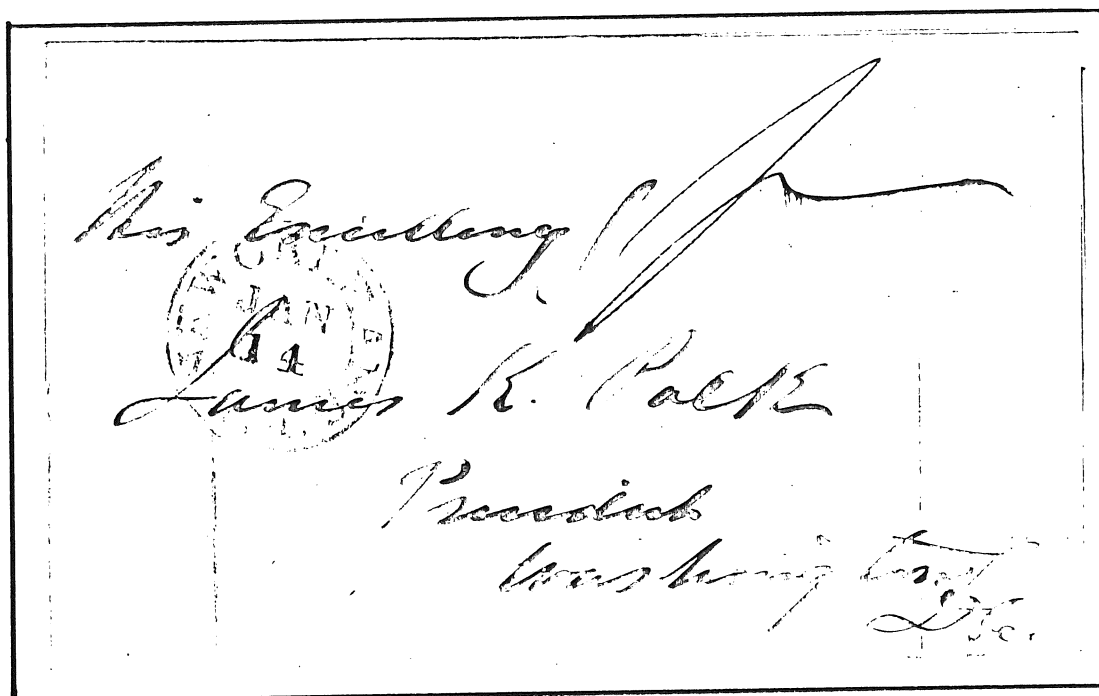 His Excellency
JAN
14
James K. Polk
President
Washington
D.C.